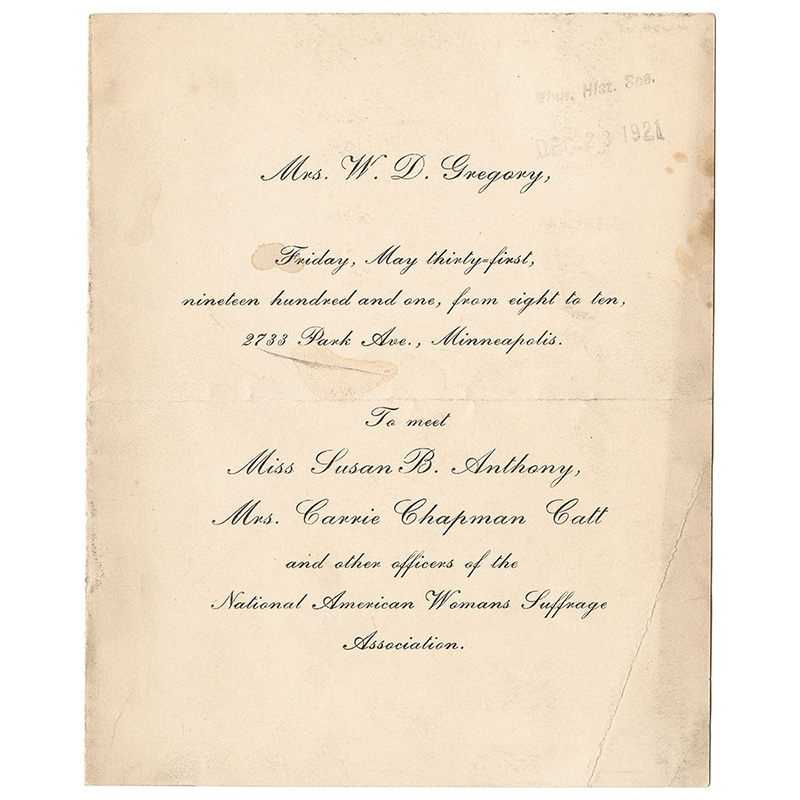 Minn. Hist. Soc.
DEC 23 1921
Mrs. W. D. Gregory,
Friday, May thirty-first,
nineteen hundred and one, from eight to ten,
2733 Park Ave., Minneapolis.
To meet
Miss Susan B. Anthony,
Mrs. Carrie Chapman Catt
and other officers of the
National American Womans Suffrage
Association.